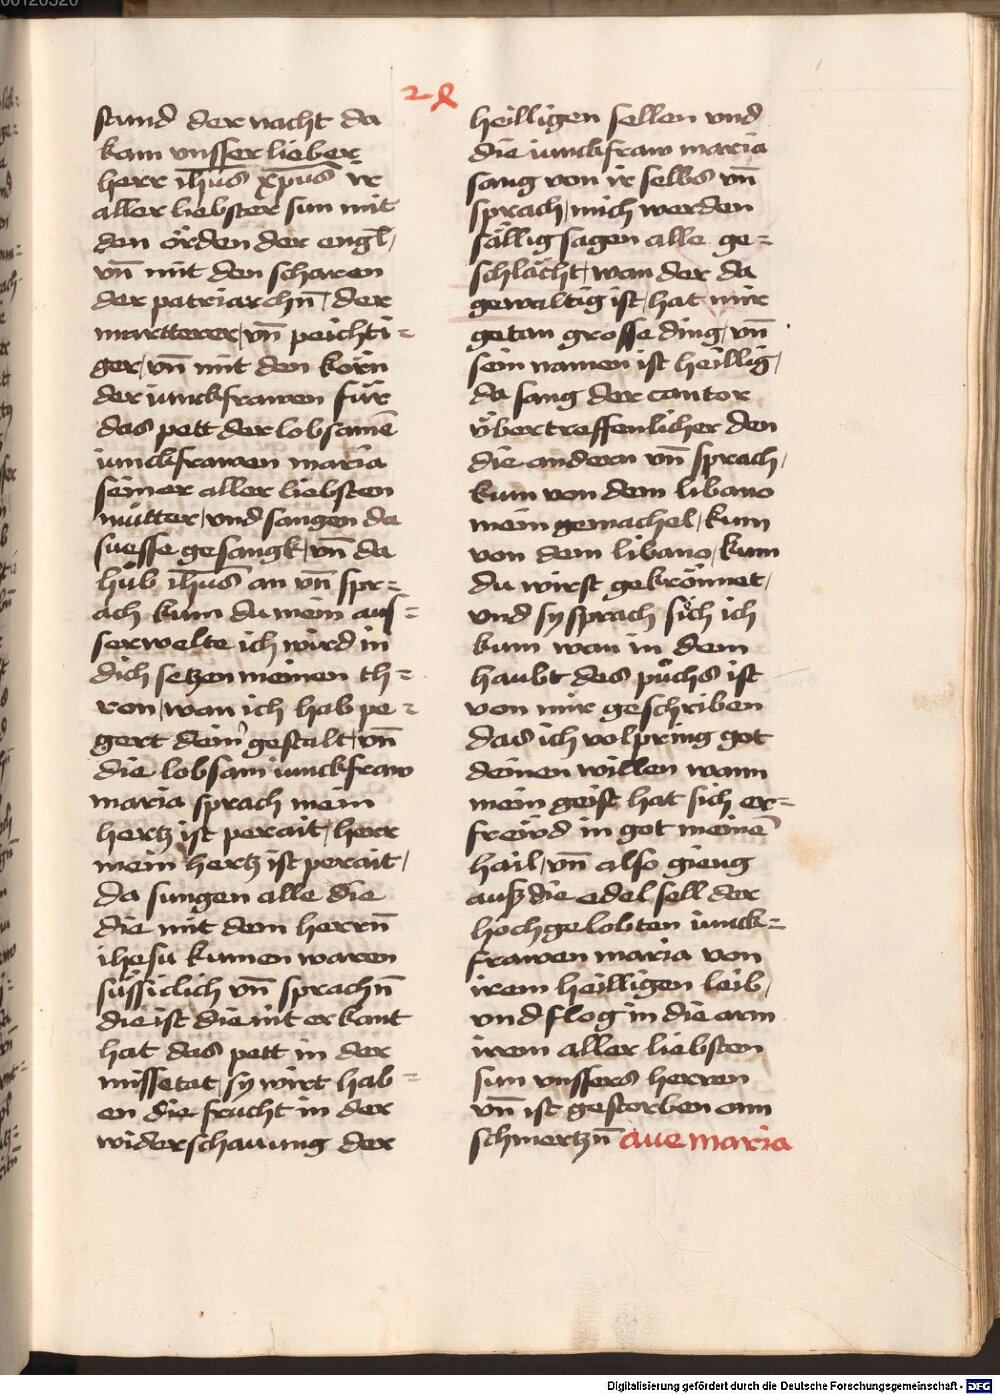 00120320
28
stund der nacht da
kam vnsser lieber
herr ih̅us xp̅us ir
aller liebster sun mit
den örden der engl̅
vn̅ mit den scharen
der patriarchn̅ / der
martterer / vn̅ peichti=
ger / vn̅ mit den körn
der iunckfrawen für
das pett der lobsame̅
iunckfrawen maria
seiner aller liebsten
mütter / vnd sangen da
suesse gesangk / vn̅ da
hüb ih̅us an vn̅ spr=
ach kum du mein aus=
serwelte ich wird in
dich setzen meinen th=
ron / wan ich hab pe=
gert dein' gestalt / vn̅
die lobsam iunckfraw
maria sprach mein
hertz ist perait / herr
mein hertz ist perait /
da sungen alle die
die mit dem herrn̅
ihesu kumen waren
süssiclich vn̅ sprachn̅
die ist die nit erkant
hat das pett in der
missetat / sy wirt hab=
en die frucht in der
widerschauung der
heilligen sellen vnd
die iunckfraw maria
sang von ir selbs vn̅
sprach / mich werden
sällig sagen alle ge=
schlächt / wan der da
gewaltig ist / hat mir
getan grosse ding / vn̅
sein namen ist heillig /
da sang der cantor
übertreffenlicher den
die andern vn̅ sprach /
kum von dem libano
mein gemachel / kum
von dem libano / kum
du wirst gekrönnet /
vnd sy sprach sich ich
kum wan in dem
haubt des püchs ist
von mir geschriben
das ich volpring got
deinen willen wann
mein geist hat sich er=
freüd in got meine̅
hail / vn̅ also gieng
ausz die edel sell der
hochgelobten iunck=
frawen maria von
irem heilligen leib /
vnd flog in die arm
irem aller liebsten
sun vnssers herren
vn̅ ist gestorben onn
schmertzn̅ aue maria
Digitalisierung gefördert durch die Deutsche Forschungsgemeinschaft - DFG